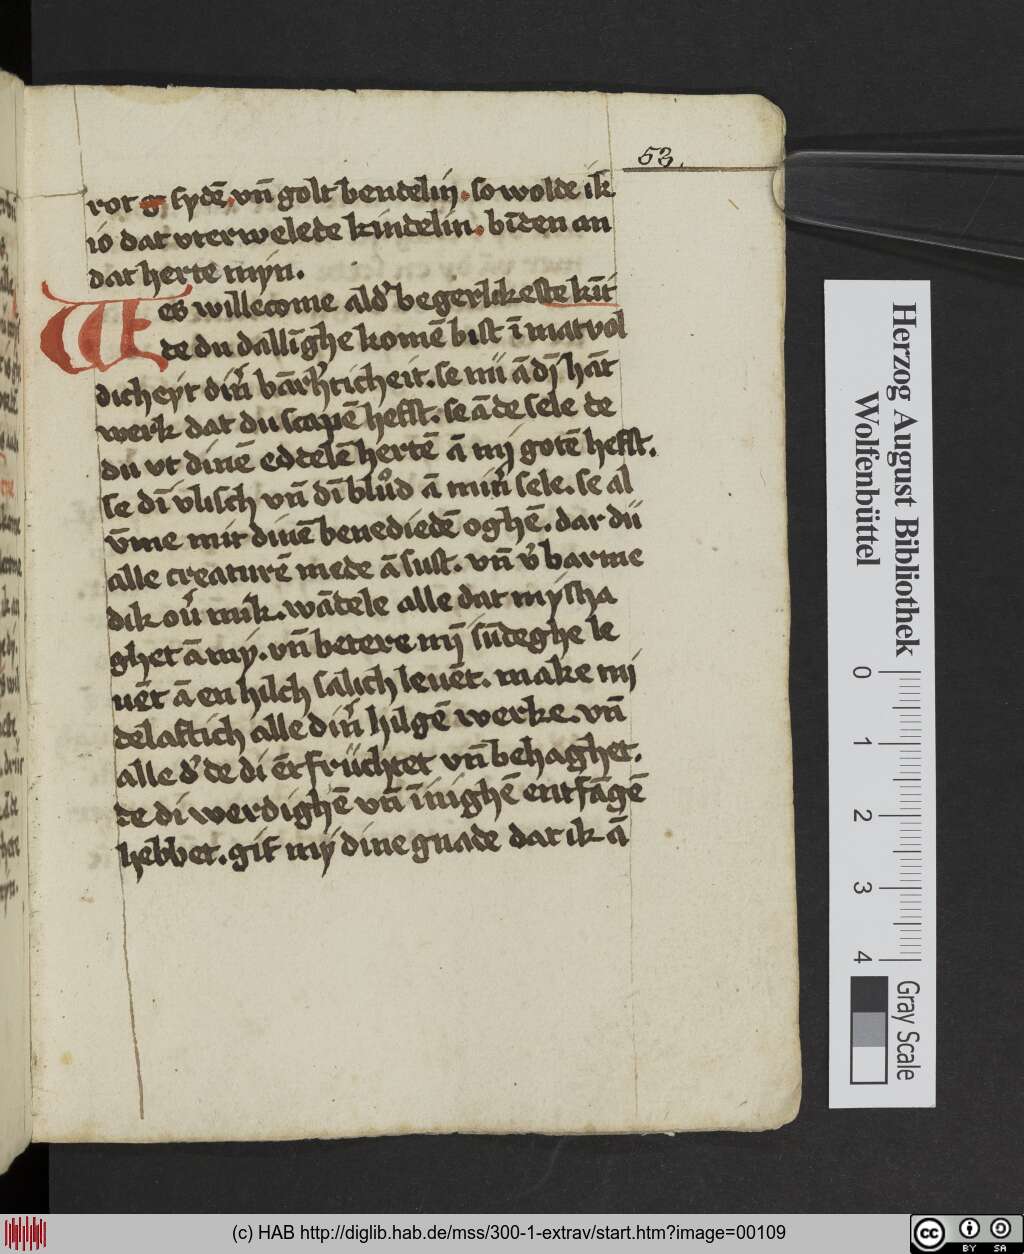 53.
rot sydē, vn̄ golt bendelin. so wolde ik
io dat vterwelede kindelin. bīden an
dat herte myn.
Wes willecome ald' begerlikeste kīt
de du dallīghe komē bist ī matvol
dicheyt din̄' bārh'ticheit. se nu ā dī hāt
werk dat du scapē hefst. se ā de sele de
du vt dinē eddelē hertē ā mi gotē hefst.
se dī vlisch vn̄ dī blůd ā min̄' sele. se al
v̄me mit dinē benediedē oghē. dar du
alle creaturē mede ā sust. vn̄ v'barme
dik ou' mik. wādele alle dat mysha
ghet ā my. vn̄ betere mī sūdeghe le
uēt ā en hilch salich leuēt. make mi
delaftich alle din̄' hilgē werke. vn̄
alle d' de di ēt früchtet vn̄ behaghet.
de di werdighē vn̄ īnighē entfāgē
hebbet. gif my dine gnade dat ik ā
Herzog August Bibliothek
Wolfenbüttel
0 1 2 3 4
Gray Scale
(c) HAB http://diglib.hab.de/mss/300-1-extrav/start.htm?image=00109
cc BY SA